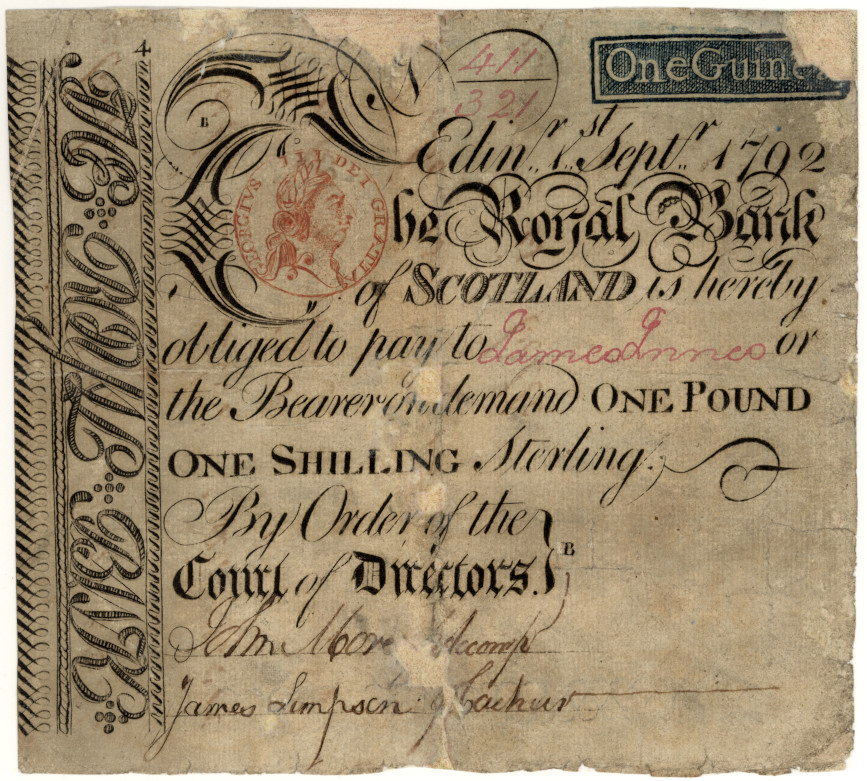 4
No 411
321
One Guin
B
Edinr. 1st Septr. 1792
GEORGIVS III DEI GRATIA
The Royal Bank
of SCOTLAND is hereby
obliged to pay to James Innes or
the Bearer on demand ONE POUND
ONE SHILLING Sterling.
By Order of the
Court of Directors. B
John More Accompt
James Simpson Cashier